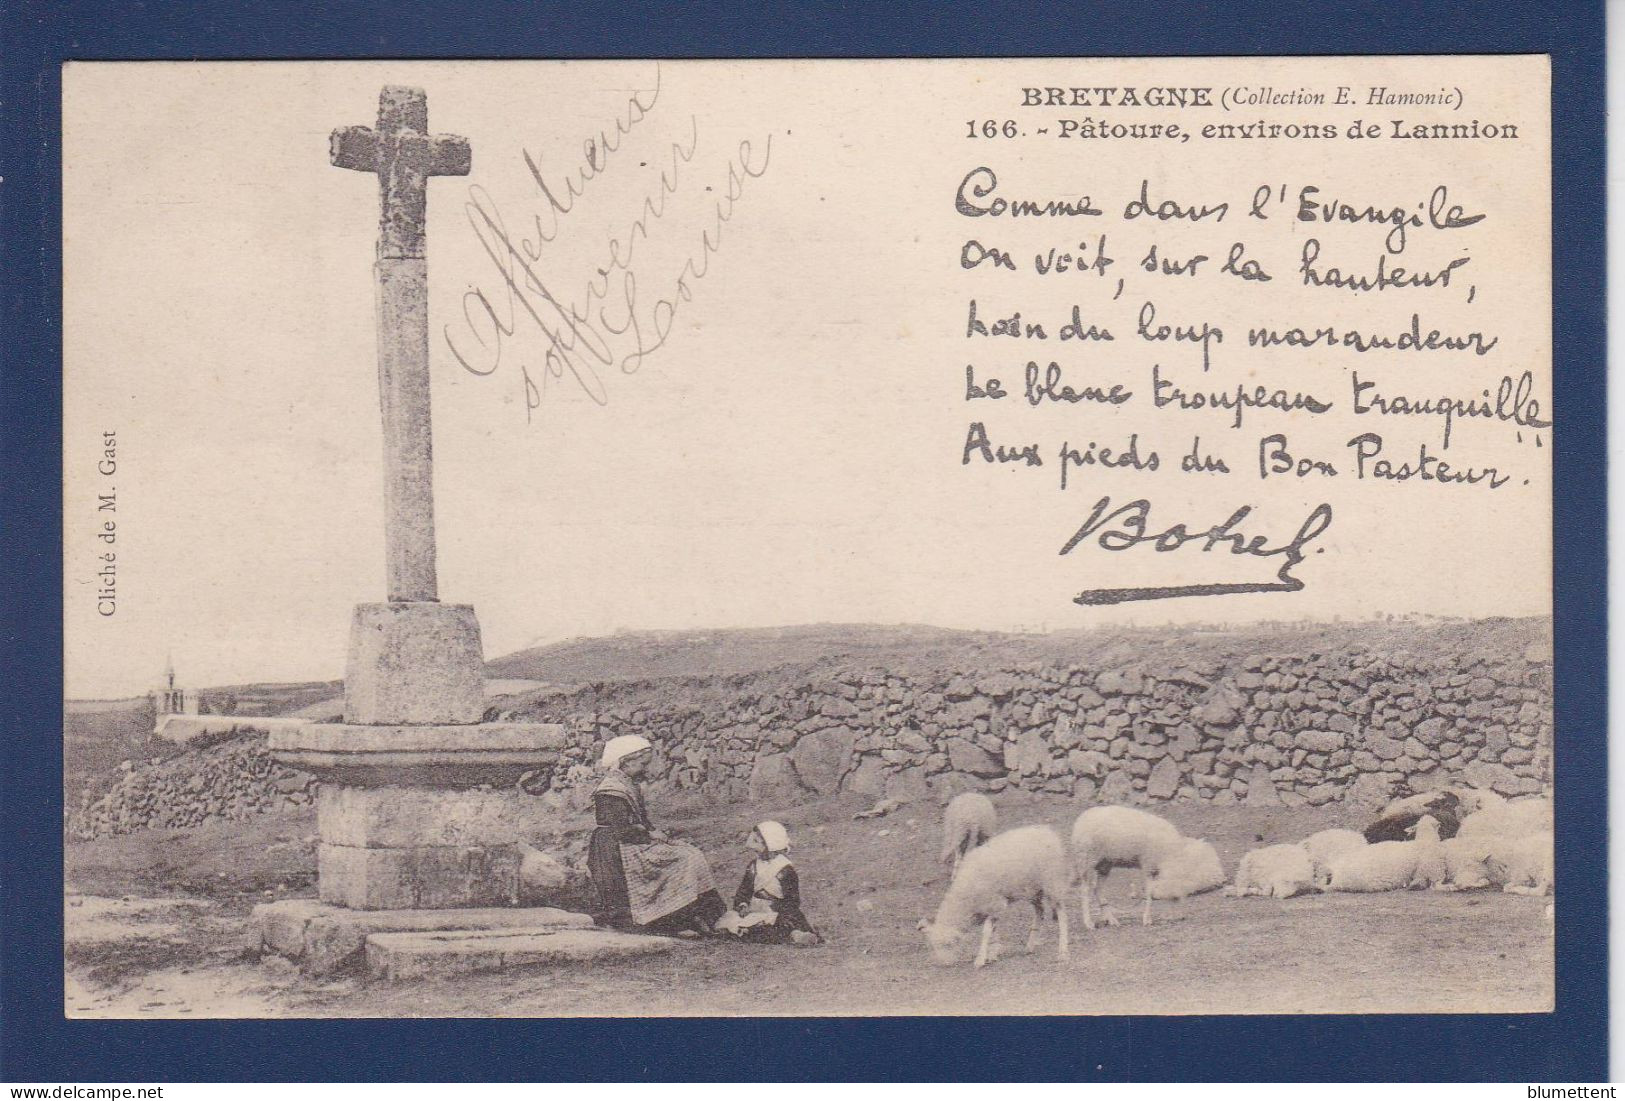 BRETAGNE (Collection E. Hamonic)
166. - Pâtoure, environs de Lannion
Comme dans l'Evangile
On voit, sur la hauteur,
Loin du loup maraudeur
Le blanc troupeau tranquille
Aux pieds du " Bon Pasteur ".
Botrel.
Affectueux
souvenir
Louise
Cliché de M. Gast
blumettent